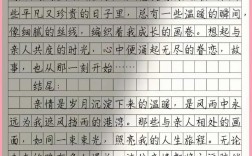 些平凡又珍贵的日子里，总有一些温暖的瞬间，
像细腻的丝线，编织着我成长的画卷。想起与
亲人共度的时光，心中便涌起无尽的眷恋，故
事，也从那一刻开始……
结尾：
亲情是岁月沉淀下来的温暖，是风雨中永
远为我遮风挡雨的港湾。那些与亲人相处的点
点滴滴，如同一束束光，照亮我的人生旅程。无论